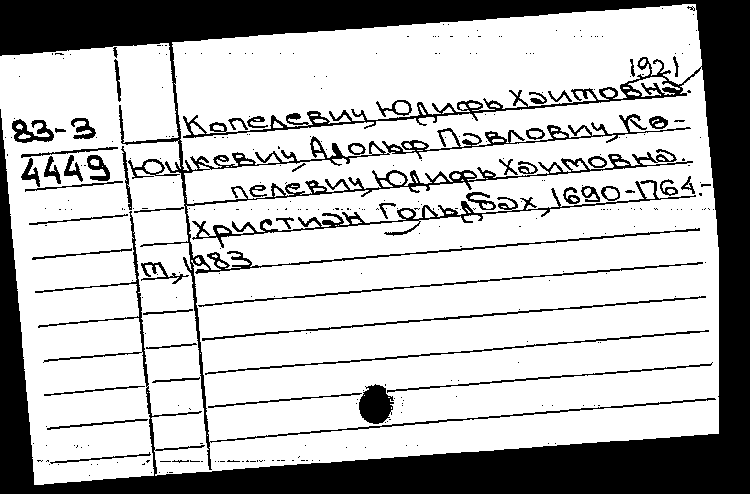 1921
83-3 Копелевич, Юдифь Хаимовна.
4449 Юшкевич, Адольф Павлович, Ко-
пелевич, Юдифь Хаимовна.
Христиан Гольдбах, 1690-1764.-
м., 1983